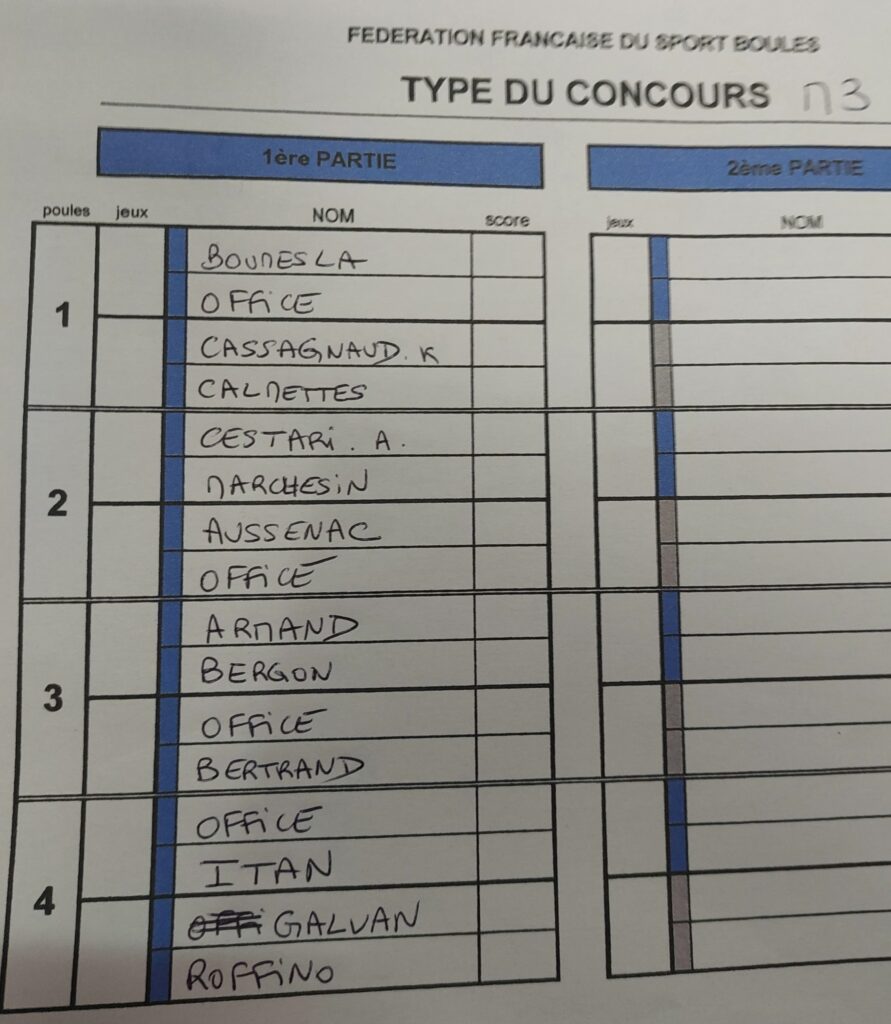 FEDERATION FRANCAISE DU SPORT BOULES
TYPE DU CONCOURS M3
1ère PARTIE
2ème PARTIE
poules jeux NOM score jeux NOM
1
BOUMESLA
OFFiCE
CASSAGNAUD. K
CALMETTES
2
CESTARi. A.
MARCHESiN
AUSSENAC
OFFiCE
3
ARMAND
BERGON
OFFiCE
BERTRAND
4
OFFiCE
ITAN
OFFi GALVAN
ROFFiNO